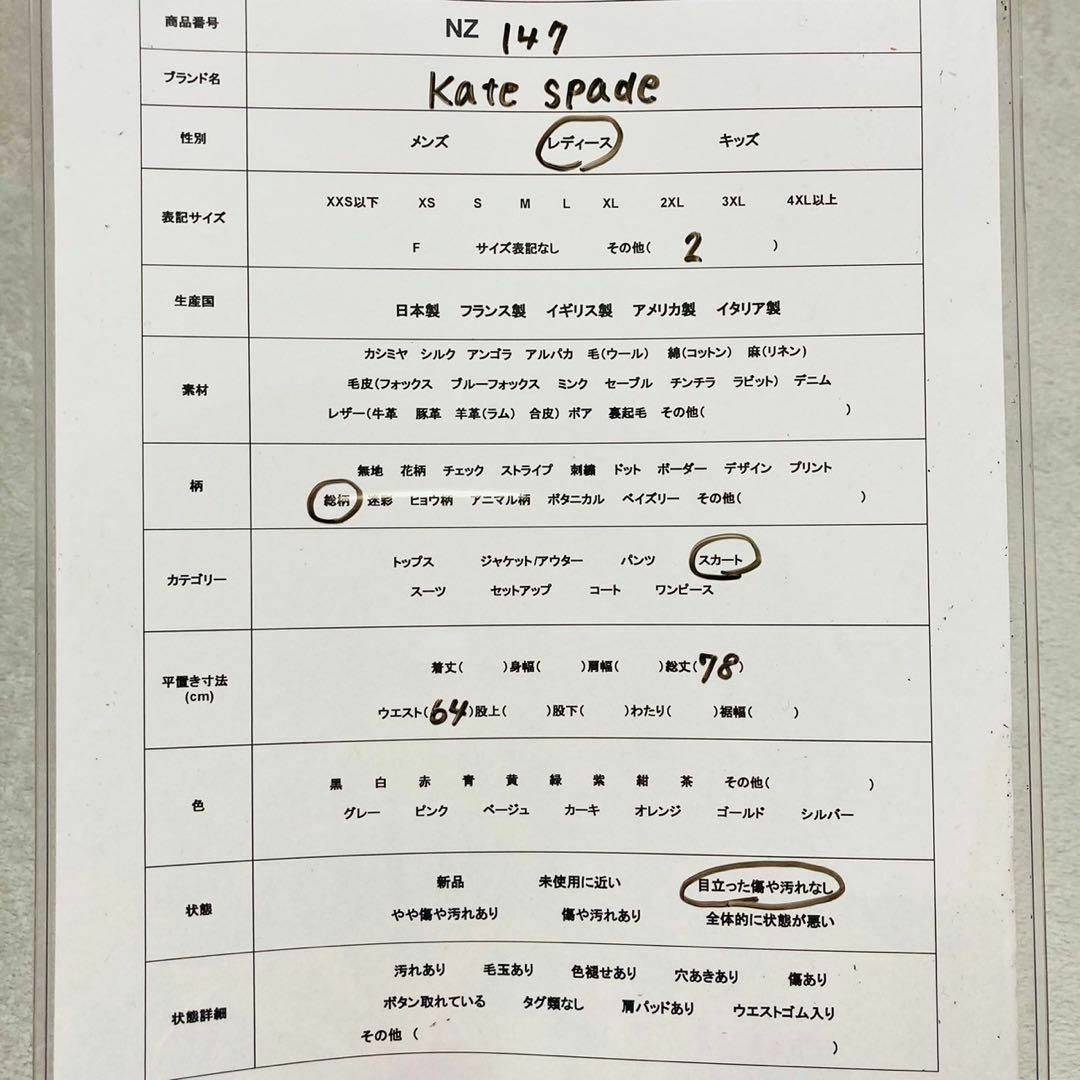 商品番号 NZ 147
ブランド名 Kate spade
性別 メンズ レディース キッズ
表記サイズ XXS以下 XS S M L XL 2XL 3XL 4XL以上
F サイズ表記なし その他( 2 )
生産国 日本製 フランス製 イギリス製 アメリカ製 イタリア製
カシミヤ シルク アンゴラ アルパカ 毛(ウール) 綿(コットン) 麻(リネン)
素材 毛皮(フォックス ブルーフォックス ミンク セーブル チンチラ ラビット) デニム
レザー(牛革 豚革 羊革(ラム) 合皮) ボア 裏起毛 その他( )
柄 無地 花柄 チェック ストライプ 刺繍 ドット ボーダー デザイン プリント
総柄 迷彩 ヒョウ柄 アニマル柄 ボタニカル ペイズリー その他( )
カテゴリー トップス ジャケット/アウター パンツ スカート
スーツ セットアップ コート ワンピース
平置き寸法 着丈( )身幅( )肩幅( )総丈(78)
(cm) ウエスト(64)股上( )股下( )わたり( )裾幅( )
色 黒 白 赤 青 黄 緑 紫 紺 茶 その他( )
グレー ピンク ベージュ カーキ オレンジ ゴールド シルバー
状態 新品 未使用に近い 目立った傷や汚れなし
やや傷や汚れあり 傷や汚れあり 全体的に状態が悪い
汚れあり 毛玉あり 色褪せあり 穴あきあり 傷あり
状態詳細 ボタン取れている タグ類なし 肩パッドあり ウエストゴム入り
その他 ( )